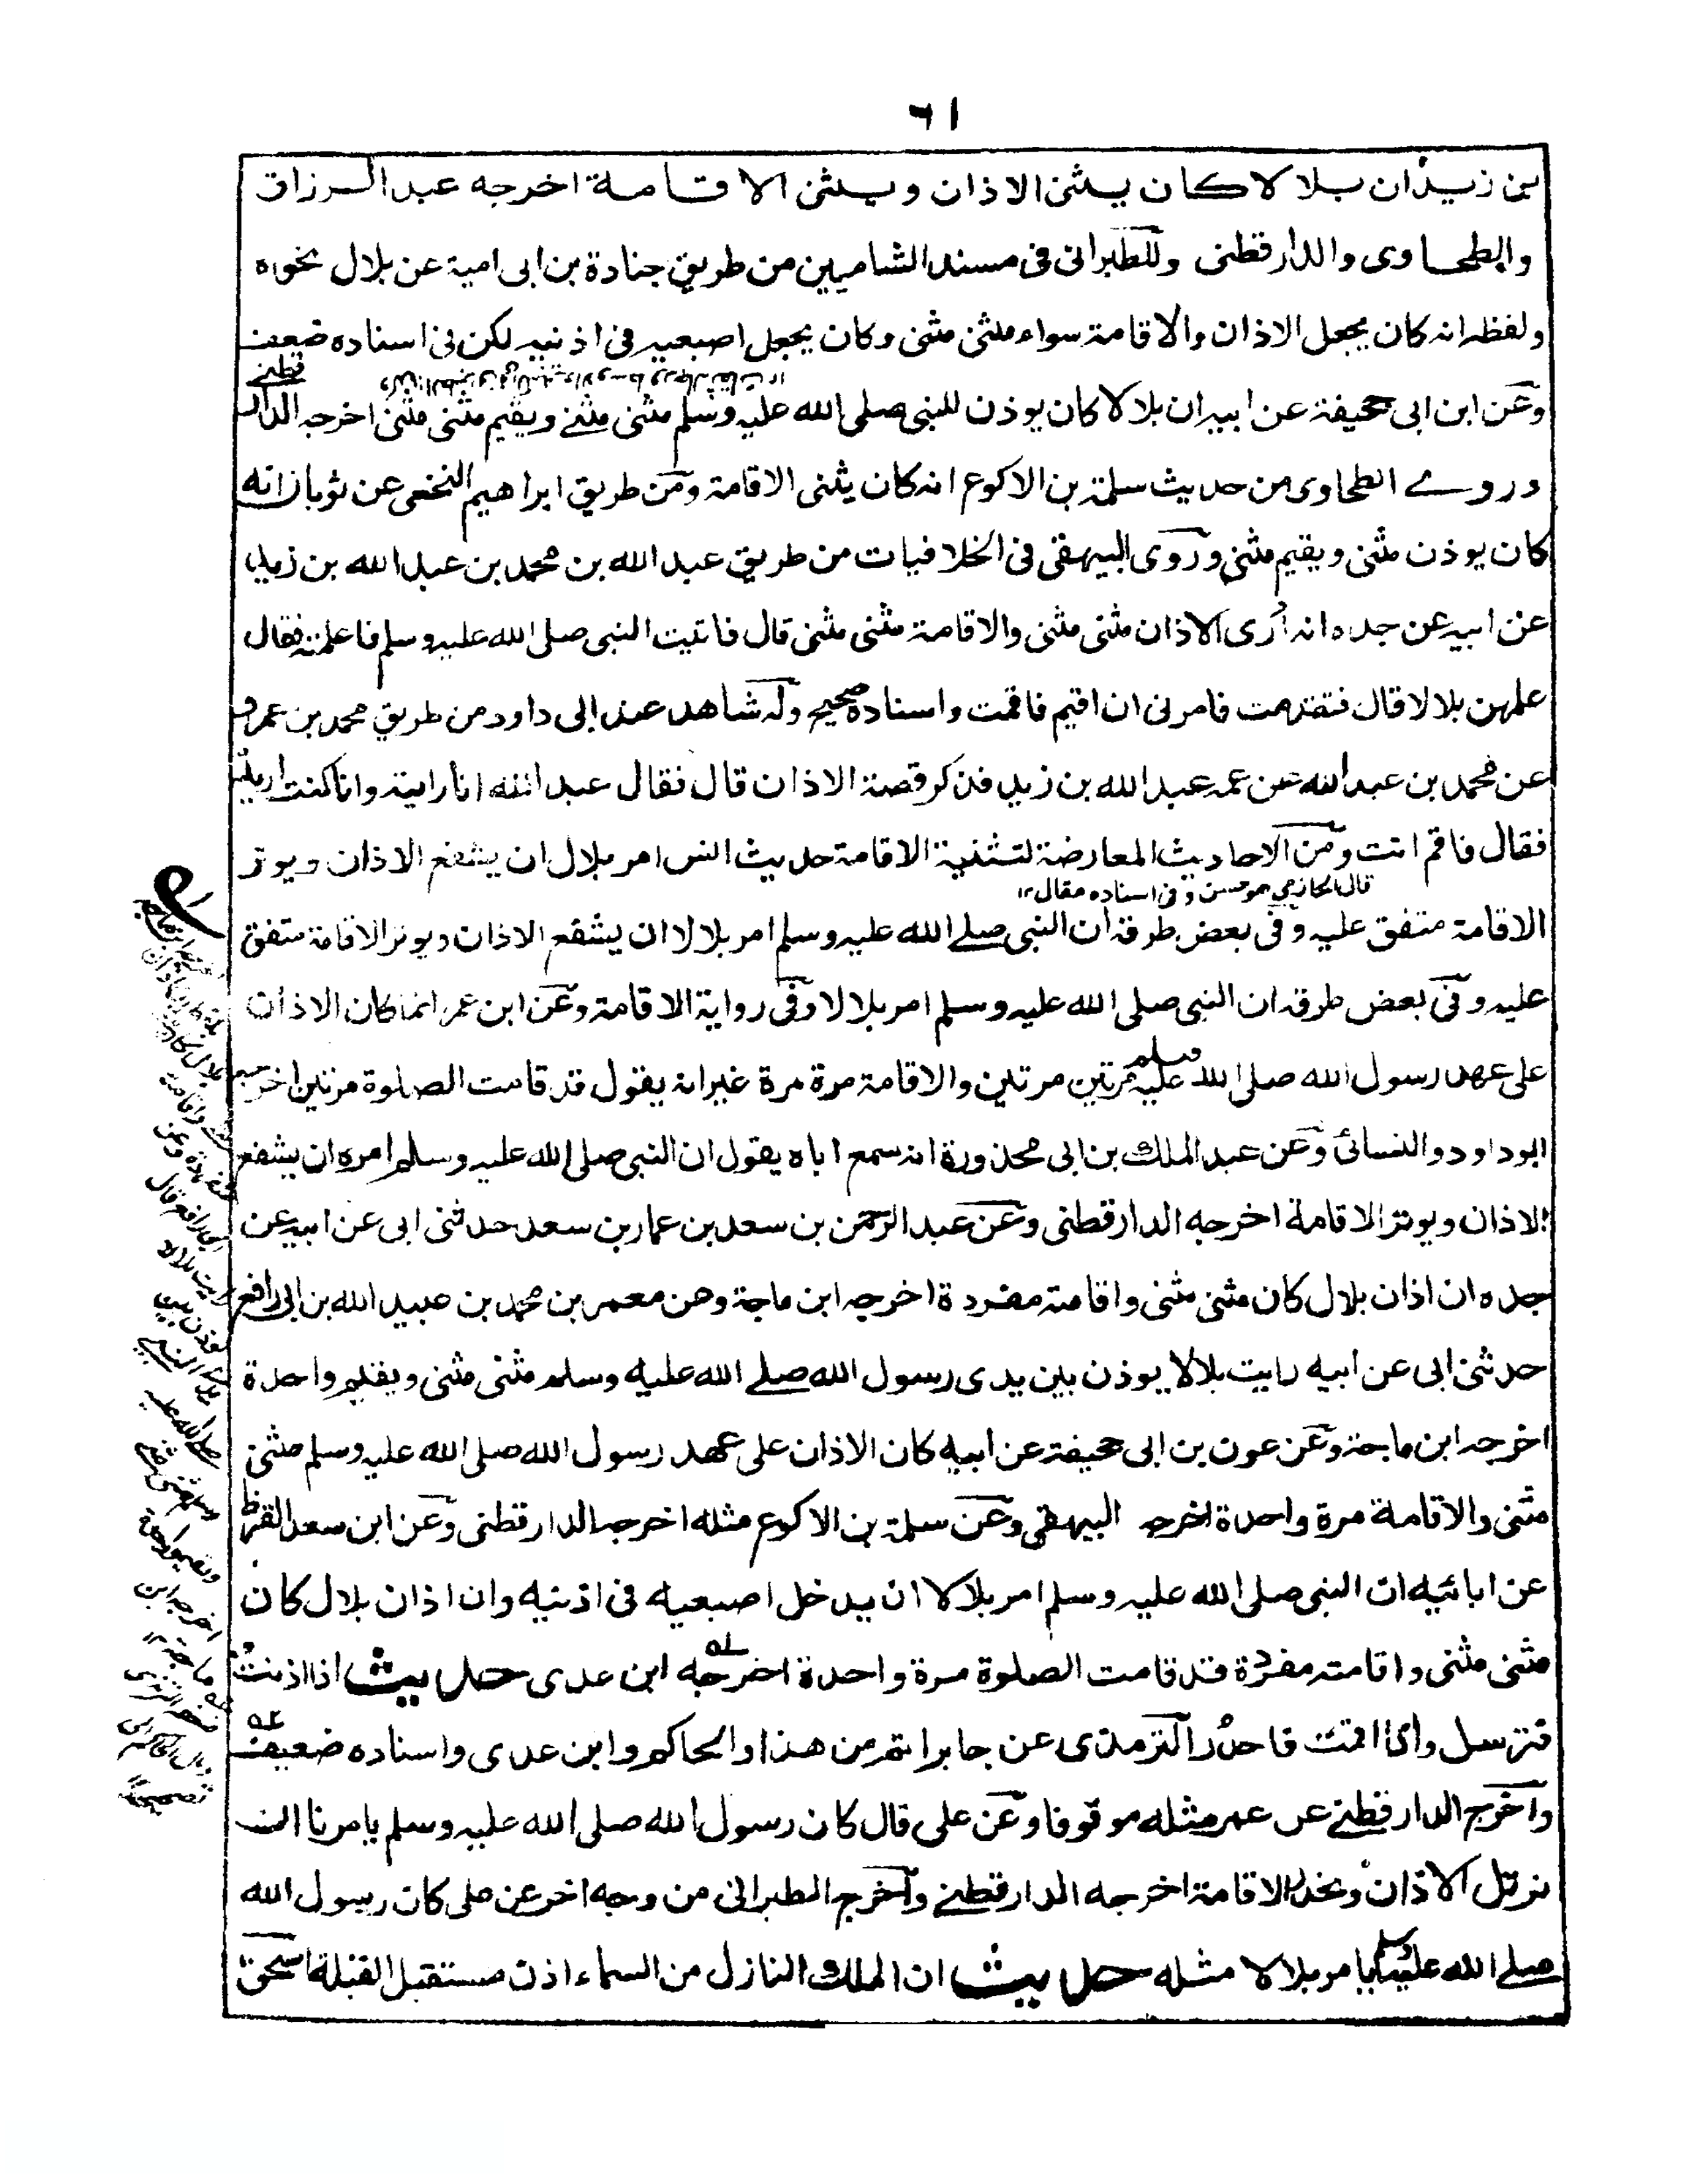 ٦١
بن زيد ان بلالا كان يثنى الاذان ويثنى الاقامة اخرجه عبد الرزاق
والطحاوى والدارقطنى وللطبرانى فى مسند الشاميين من طريق جنادة بن ابى امية عن بلال نحوه
ولفظه انه كان يجعل الاذان والاقامة سواء مثنى مثنى وكان يجعل اصبعيه فى اذنيه لكن فى اسناده ضعف
وعن ابن ابى جحيفة عن ابيه ان بلالا كان يوذن للنبى صلى الله عليه وسلم مثنى مثنى ويقيم مثنى مثنى اخرجه الدار قطنے
وروے الطحاوى من حديث سلمة بن الاكوع انه كان يثنى الاقامة ومن طريق ابراهيم النخعى عن ثوبان انه
كان يوذن مثنى ويقيم مثنى وروى البيهقى فى الخلافيات من طريق عبد الله بن محمد بن عبد الله بن زيد
عن ابيه عن جده انه أرى الاذان مثنى مثنى والاقامة مثنى مثنى قال فاتيت النبى صلى الله عليه وسلم فاعلمته فقال
علمهن بلالا قال فتقدمت فامرنى ان اقيم فاقمت واسناده صحيح وله شاهد عند ابى داود من طريق محمد بن عمرو
عن محمد بن عبد الله عن عمه عبد الله بن زيد فذكر قصة الاذان قال فقال عبد الله انا رايته وانا كنت اريده
فقال فاقم انت ومن الاحاديث المعارضة لتثنية الاقامة حديث انس امر بلال ان يشفع الاذان ويوتر
قال الحازمى هو حسن وفى اسناده مقال ١٢
الاقامة متفق عليه وفى بعض طرقه ان النبى صلے الله عليه وسلم امر بلالا ان يشفع الاذان ويوتر الاقامة متفق
عليه وفى بعض طرقه ان النبى صلى الله عليه وسلم امر بلالا وفى رواية الا قامة وعن ابن عمر انما كان الاذان
على عهد رسول الله صلى الله عليه وسلم مرتين مرتين والاقامة مرة مرة غير انه يقول قد قامت الصلوة مرتين اخرجه
ابو داود والنسائى وعن عبد الملك بن ابى محذورة انه سمع اباه يقول ان النبى صلى الله عليه وسلم امره ان يشفع
الاذان ويوتر الاقامة اخرجه الدارقطنى وعن عبد الرحمن بن سعد بن عمار بن سعد حدثنى ابى عن ابيه عن
جده ان اذان بلال كان مثنى مثنى واقامته مفردة اخرجه ابن ماجة وعن معمر بن محمد بن عبيد الله بن ابى رافع
حدثنى ابى عن ابيه رايت بلالا يوذن بين يدى رسول الله صلے الله عليه وسلم مثنى مثنى ويقيم واحدة
اخرجه ابن ماجة وعن عون بن ابى جحيفة عن ابيه كان الاذان على عهد رسول الله صلى الله عليه وسلم مثنى
مثنى والاقامة مرة واحدة اخرجه البيهقى وعن سلمة بن الاكوع مثله اخرجه الدارقطنى وعن ابن سعد القرظ
عن ابائيه ان النبى صلى الله عليه وسلم امر بلالا ان يدخل اصبعيه فى اذنيه وان اذان بلال كان
مثنى مثنى واقامته مفردة قد قامت الصلوة مرة واحدة اخرجه ابن عدى حديث اذا اذنت
فترسل واذا اقمت فاحدر الترمذى عن جابر اتم من هذا والحاكم وابن عدى واسناده ضعيف
واخرج الدارقطنے عن عمر مثله موقوفا وعن على قال كان رسول الله صلى الله عليه وسلم يامرنا ان
نرتل الاذان ونحذر الاقامة اخرجه الدارقطنے واخرج الطبرانى من وجه اخر عن على كان رسول الله
صلے الله عليه وسلم يامر بلالا مثله حديث ان الملك النازل من السماء اذن مستقبل القبلة اسحق